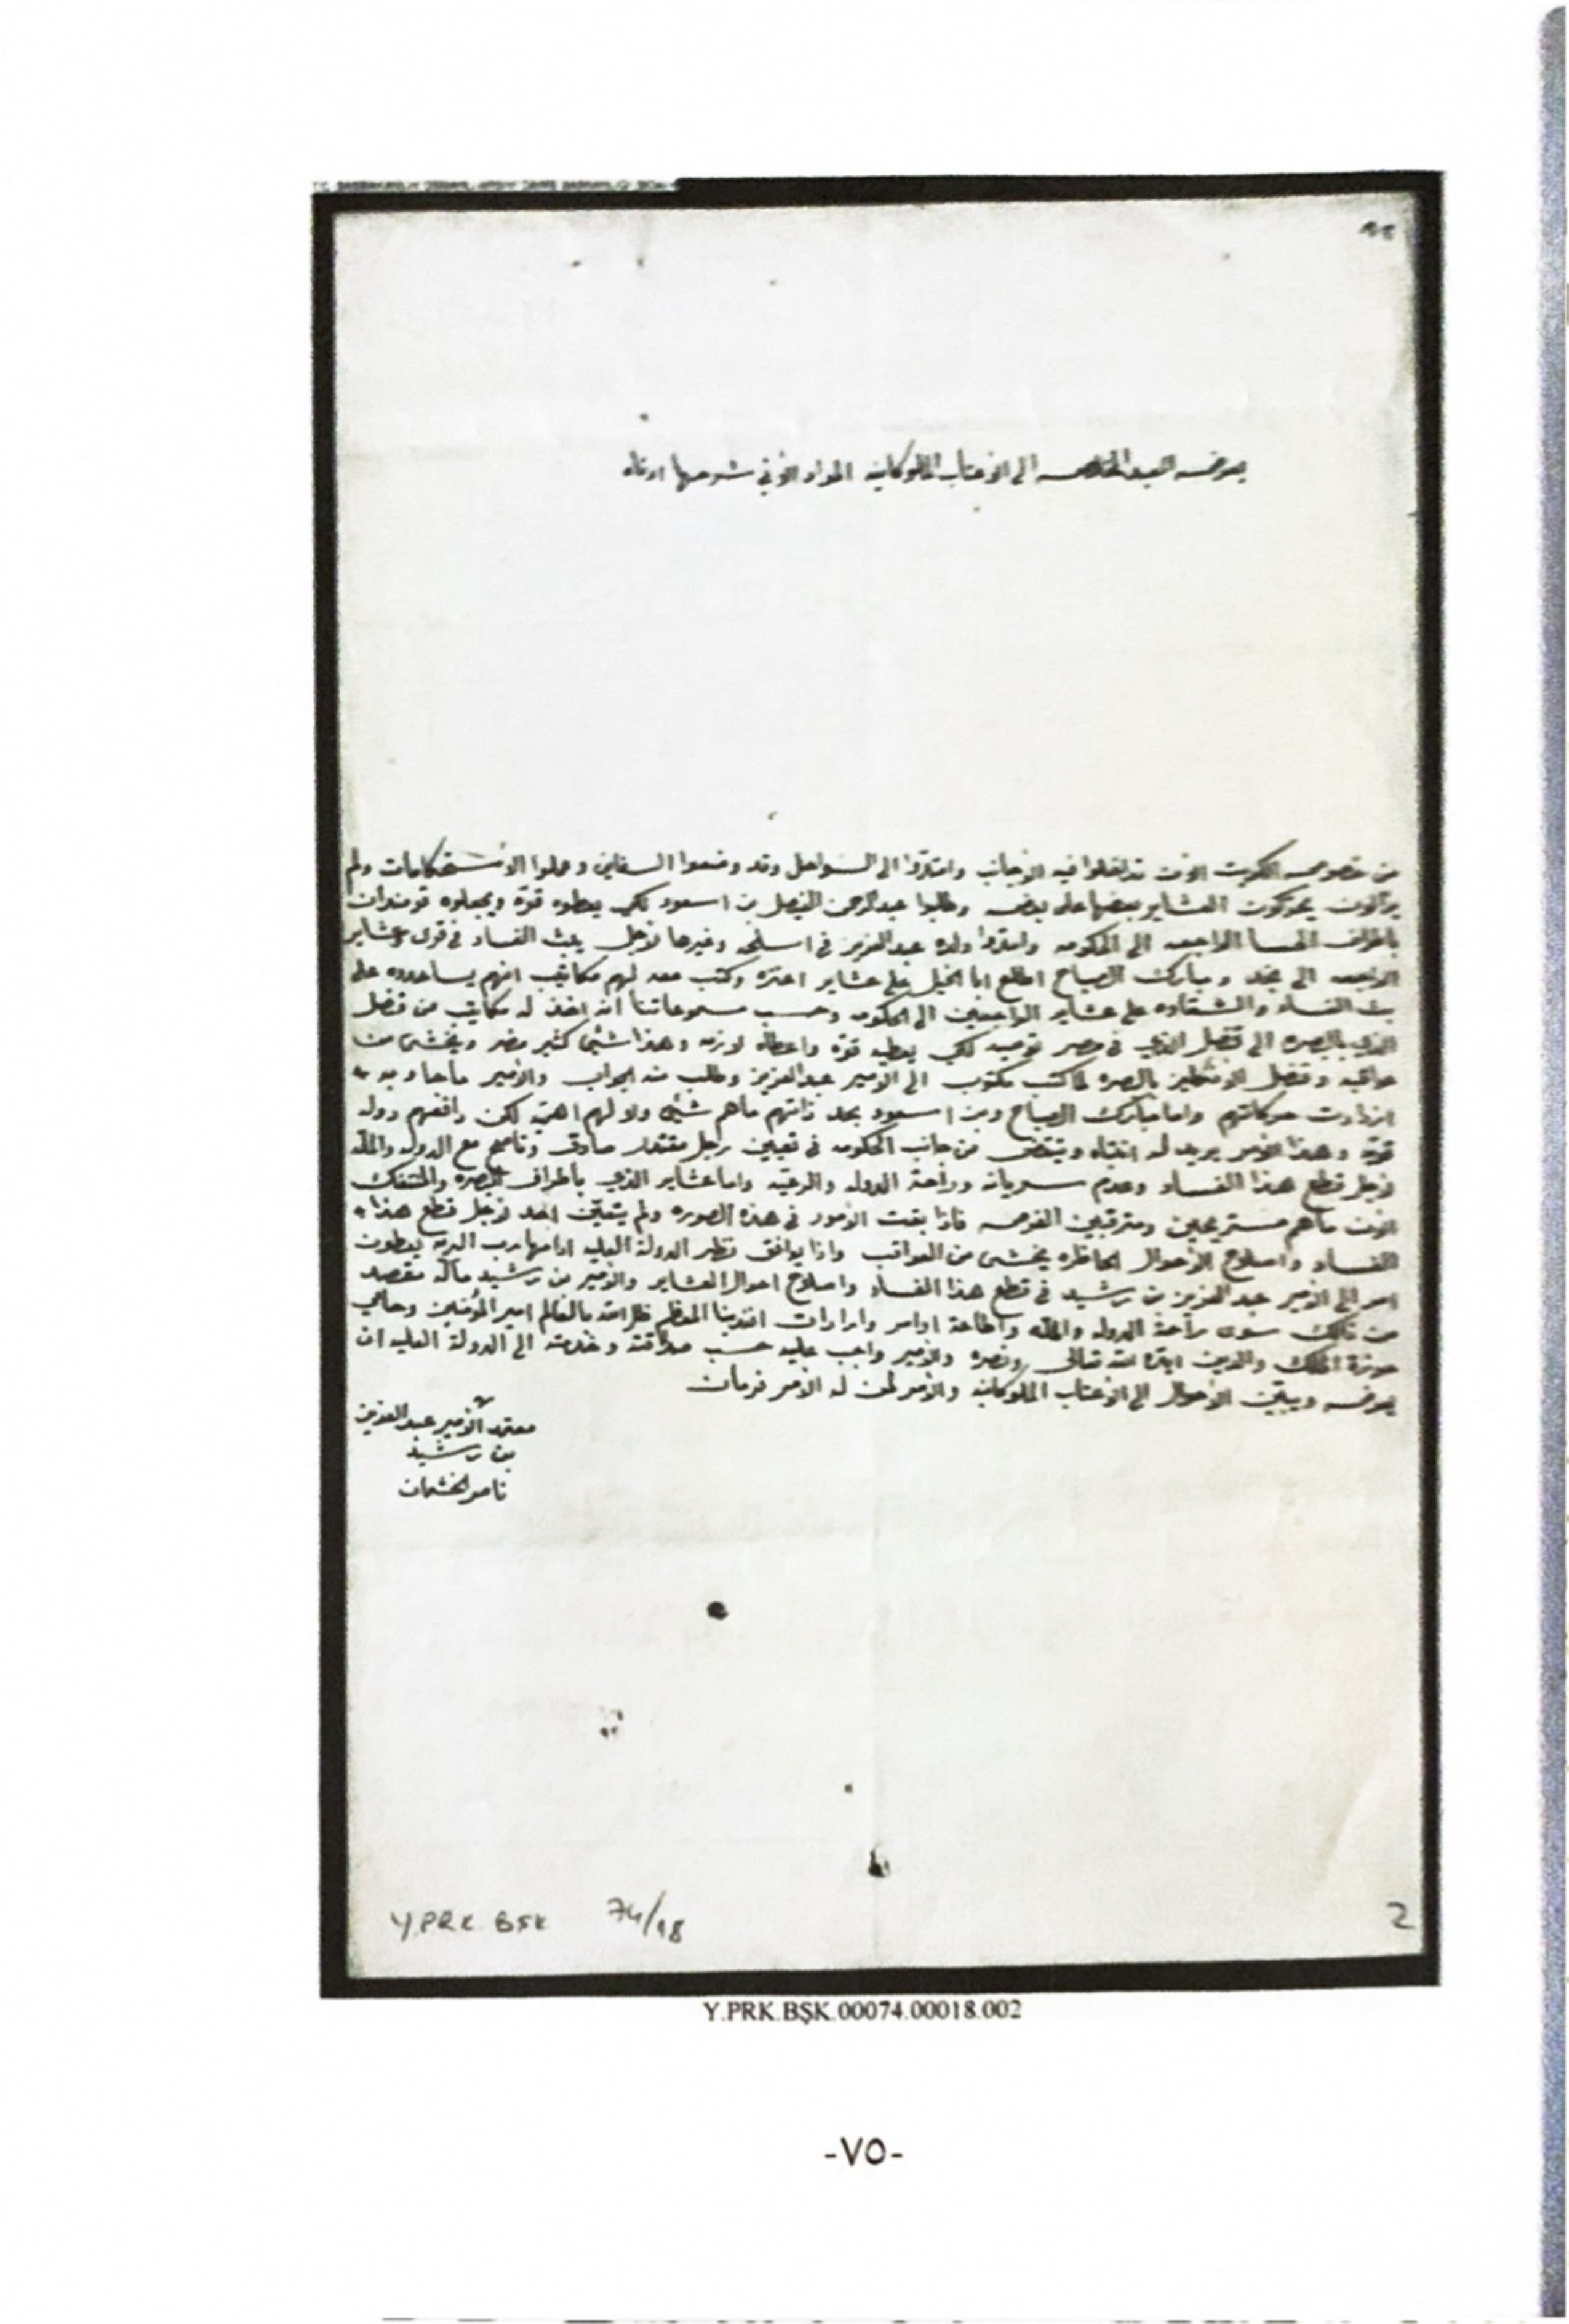 يعرض العبد الخالص الى الاعتاب الملوكانيه المواد الاتي شرحها ادناه
من خصوص الكويت الان تداخلوا فيه الاجانب وامتدوا الى السواحل وقد وضعوا السفاين وعملوا الاستحكامات ولم
يزالون يحركون العشاير بعضها على بعض وطلبوا عبدالرحمن الفيصل بن اسعود لكي يعطوه قوة ويجعلوه قومندان
باطراف الحسا الراجعه الى الحكومه وامدوا ولده عبدالعزيز في اسلحه وغيرها لاجل يبث الفساد في قرى وعشاير
الراجعه الى نجد ومبارك الصباح اطلع ابا الخيل على عشاير اعنزه وكتب معه لهم مكاتيب انهم يساعدوه على
بث الفساد والشقاوه على عشاير الراجعين الى الحكومه وحسب مسموعاتنا انه اخذ له مكاتيب من قنصل
الذي بالبصره الى قنصل الذي في مصر توصيه لكي يعطيه قوة واعطاله لازمه وهذا شئي كثير مضر ويخشى من
عواقبه وقنصل الانگليز بالبصره لما كتب مكتوب الى الامير عبدالعزيز وطلب منه الجواب والامير ما جاوبه
ازدادت حركاتهم واما مبارك الصباح وبن اسعود بحد ذاتهم ماهم شئي ولا لهم اهميه لكن رافعهم دوله
قوية وهذا الامر يريد له انتباه ويقتضى من جانب الحكومه في تعيين رجل مقتدر صادق وناصح مع الدوله والملة
لاجل قطع هذا الفساد وعدم سريانه وراحة الدوله والرعيه واما عشاير الذي باطراف البصره والمنتفك
الان ماهم مستريحين ومترقبين الفرصه فاذا بقت الامور في هذه الصوره ولم يتعين احد لاجل قطع هذا
الفساد واصلاح الاحوال الحاظره يخشى من العواقب واذا يوافق نظر الدولة العليه ادامها رب البريه يعطون
امر الى الامير عبدالعزيز بن رشيد في قطع هذا الفساد واصلاح احوال العشاير والامير بن رشيد ماله مقصد
من ذلك سوى راحة الدوله والمله واطاعة اوامر وارادات افندينا المعظم ظل الله بالعالم امير المؤمنين وحامي
حوزة الملك والدين ايده الله تعالى ونصره والامير واجب عليه حسب صداقته وخدمته الى الدولة العليه ان
يعرض ويبين الاحوال الى الاعتاب الملوكانيه والامر لمن له الامر فرمان
معتمد الامير عبدالعزيز
بن رشيد
ناصر الخشمان
Y.PRK.BŞK 74/18
2
Y.PRK.BŞK.00074.00018.002
-٧٥-